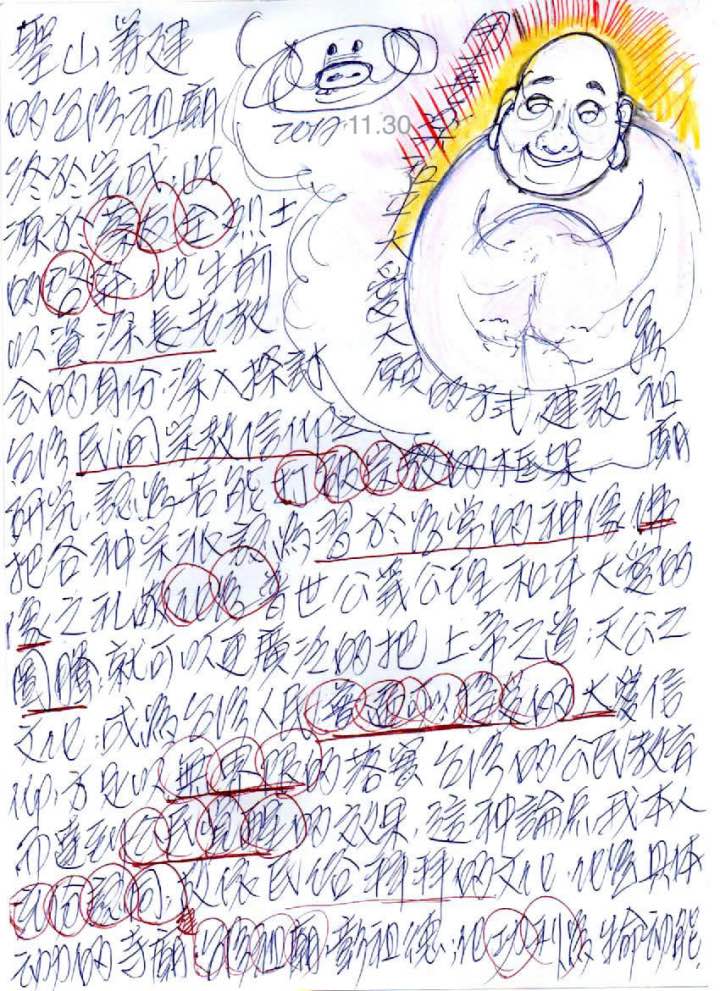 聖山籌建
的台湾祖廟
終於完成,此
源於蔡友全烈士
的啓軔,他生前
以資深長老教
会的身份,深入探討
台湾民间宗教信仰之
研究,認為若能打破宗教的框架
把各种宗派認為習於為常的神像,佛
像之礼做化為普世公義公理和平大愛的
圖騰,就可以更廣泛的把上帝之道,天公之
文化,成為台湾人民普遍可以接受的大愛信
仰,方足以無界限的落實台湾的公民教育
而達到公民覺醒的效果,這种論点我本人
充份認同,故依民俗拜拜的文化,化為具体
动力的寺廟,台湾祖廟,彰祖德,化功利為生命动能
愛
大
願的方式建設祖
廟
2017.11.30